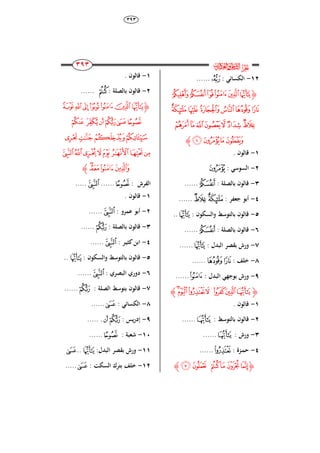 ٣٩٣
٣٩٣
١٢- الكسائي : رَبُّهُۥٓ ......
﴿ يَـٰٓأَيُّهَا ٱلَّذِينَ ءَامَنُوا۟ قُوٓا۟ أَنفُسَكُمْ وَأَهْلِيكُمْ
نَارًا وَقُودُهَا ٱلنَّاسُ وَٱلْحِجَارَةُ عَلَيْهَا مَلَـٰٓئِكَةٌ
غِلَاظٌ شِدَادٌ لَّا يَعْصُونَ ٱللَّهَ مَآ أَمَرَهُمْ
وَيَفْعَلُونَ مَا يُؤْمَرُونَ ٦ ﴾
١- قالون .
٢- السوسي : يُؤْمَرُونَ
٣- قالون بالصلة : أَنفُسَكُمْ ......
٤- أبو جعفر : مَلَـٰٓئِكَةٌ غِلَاظٌ ......
٥- قالون بالتوسط والسكون : يَـٰٓأَيُّهَا ..
٦- قالون بالصلة : أَنفُسَكُمْ ......
٧- ورش بقصر البدل : يَـٰٓأَيُّهَا ......
٨- خلف : نَارًا وَقُودُهَا ......
٩- ورش بوجهي البدل : ءَامَنُوا۟ ......
﴿ يَـٰٓأَيُّهَا ٱلَّذِينَ كَفَرُوا۟ لَا تَعْتَذِرُوا۟ ٱلْيَوْمَ ﴾
١- قالون .
٢- قالون بالتوسط : يَـٰٓأَيُّهَا ......
٣- ورش : يَـٰٓأَيُّهَا ......
٤- حمزة : تَعْتَذِرُوا۟ ......
﴿ إِنَّمَا تُجْزَوْنَ مَا كُنتُمْ تَعْمَلُونَ ٧ ﴾
١- قالون .
٢- قالون بالصلة : كُنتُمْ ......
﴿ يَـٰٓأَيُّهَا ٱلَّذِينَ ءَامَنُوا۟ تُوبُوٓا۟ إِلَى ٱللَّهِ تَوْبَةً
نَّصُوحًا عَسَىٰ رَبُّكُمْ أَن يُكَفِّرَ عَنكُمْ
سَيِّـَٔاتِكُمْ وَيُدْخِلَكُمْ جَنَّـٰتٍ تَجْرِى
مِن تَحْتِهَا ٱلْأَنْهَـٰرُ يَوْمَ لَا يُخْزِى ٱللَّهُ ٱلنَّبِىَّ
وَٱلَّذِينَ ءَامَنُوا۟ مَعَهُۥ ﴾
الفرش : نَّصُوحًا ...... ٱلنَّبِىَّ .....
١- قالون .
٢- أبو عمرو : ٱلنَّبِىَّ ......
٣- قالون بالصلة : رَبُّكُمْ ......
٤- ابن كثير : ٱلنَّبِىَّ ......
٥- قالون بالتوسط والسكون : يَـٰٓأَيُّهَا ..
٦- دوري البصري : ٱلنَّبِىَّ ......
٧- قالون بتوسط الصلة : رَبُّكُمْ ......
٨- الكسائي : عَسَىٰ ......
٩- إدريس : رَبُّكُمْ أَن ......
١٠- شعبة : نَّصُوحًا ......
١١- ورش بقصر البدل: يَـٰٓأَيُّهَا .. عَسَىٰ ......
١٢- خلف بترك السكت : عَسَىٰ ......